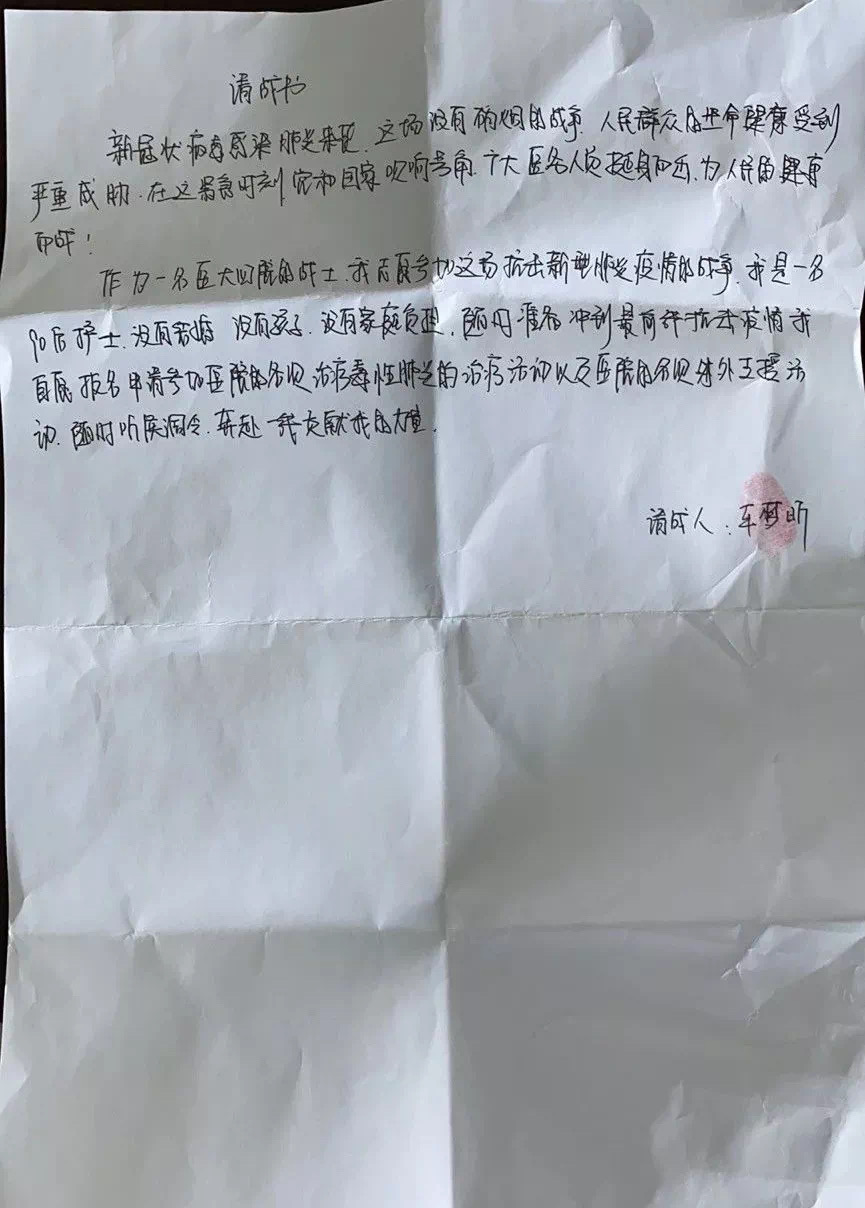 请战书
新冠状病毒感染肺炎来袭,这场没有硝烟的战争,人民群众的生命健康受到
严重威胁.在这紧急时刻 党和国家吹响号角,广大医务人员挺身而出,为人民的健康
而战!
作为一名医大四院的战士,我志愿参加这场抗击新型肺炎疫情的战争,我是一名
90后护士,没有结婚 没有孩子,没有家庭负担,随时准备冲到最前线抗击疫情我
自愿报名申请参加医院的各项治病毒性肺炎的治疗活动以及医院的各项对外支援活
动,随时听候调令,奔赴一线贡献我的力量.
请战人:车梦昕